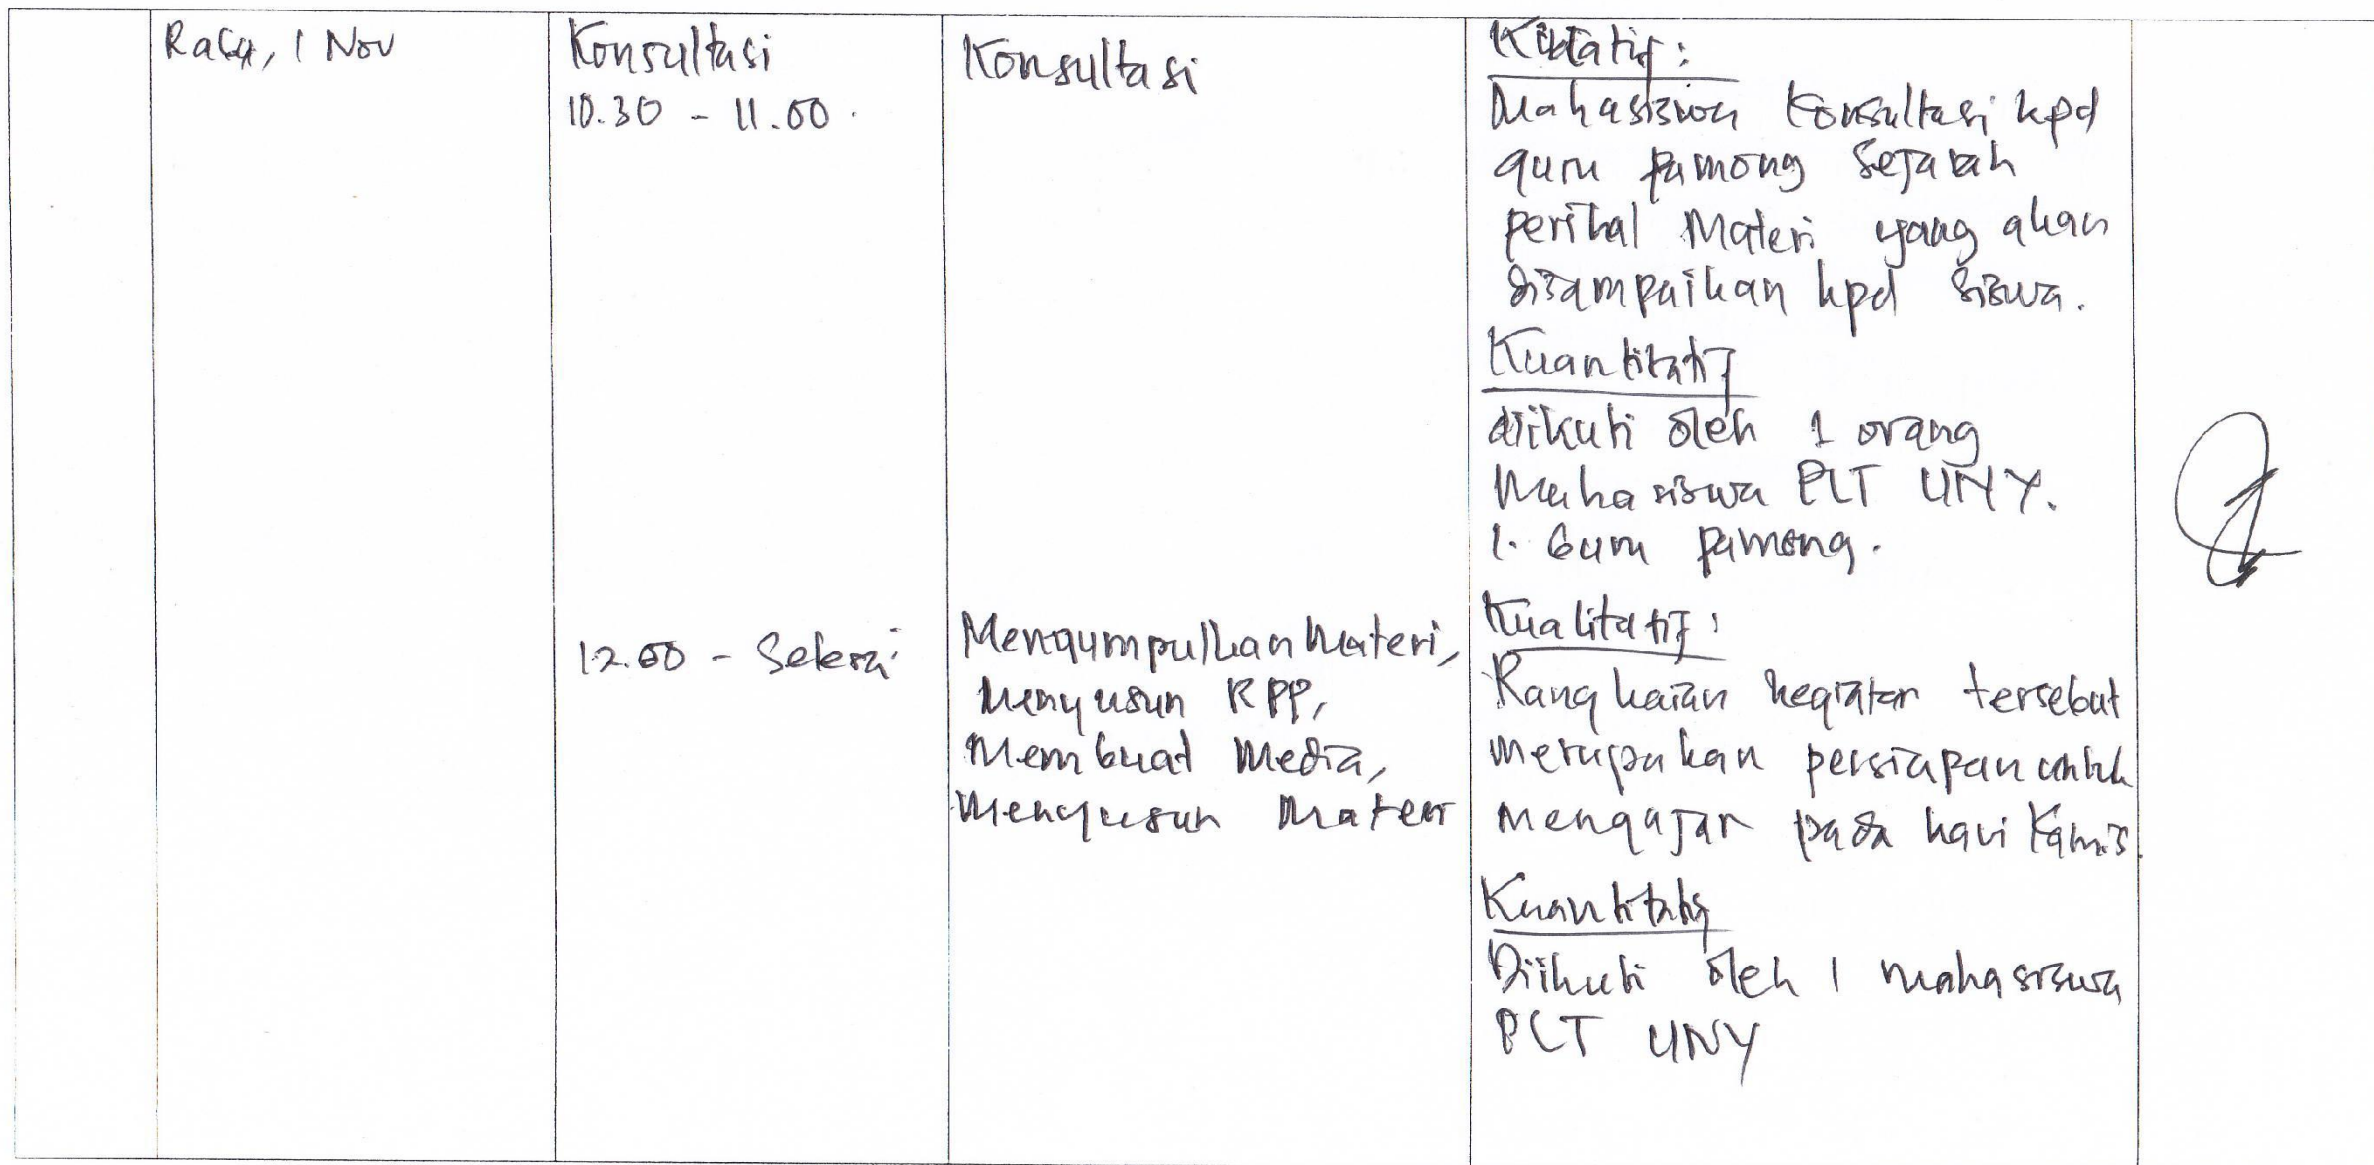 Rabu, 1 Nov
Konsultasi
10.30 - 11.00
Konsultasi
Mahasiswa Konsultasi kpd
guru pamong Sejarah
perihal Materi yang akan
disampaikan kpd siswa.
Kuantitatif
diikuti oleh 1 orang
Mahasiswa PLT UNY.
1. Guru pamong.
12.00 - Selesai
Mengumpulkan Materi,
Menyusun RPP,
Membuat Media,
Menyusun Materi
Kualitatif :
Rangkaian kegiatan tersebut
merupakan persiapan untuk
mengajar pada hari Kamis.
Kuantitatif
Diikuti oleh 1 mahasiswa
PLT UNY